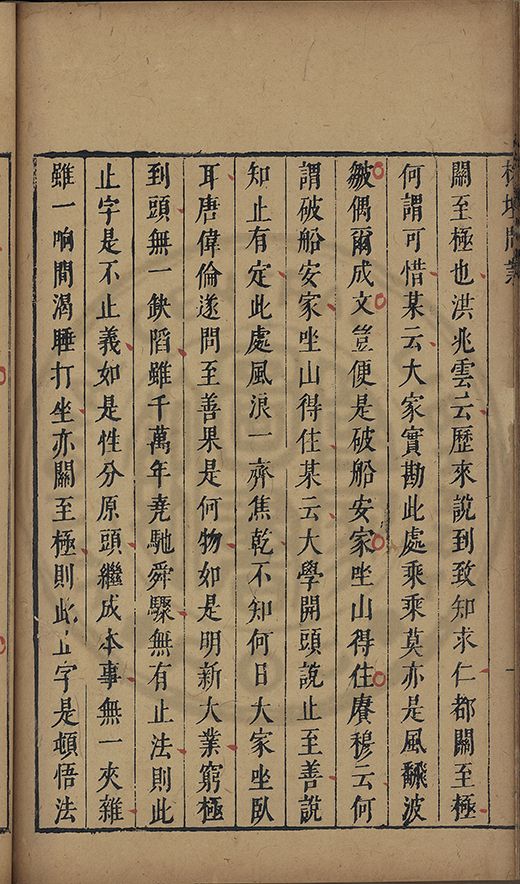 榕壇問業
關至極也洪兆雲云歷來說到致知求仁都關至極
何謂可惜某云大家實勘此處乘乘莫亦是風飜波
皺偶爾成文豈便是破船安家坐山得住賡穆云何
謂破船安家坐山得住某云大學開頭說止至善說
知止有定此處風浪一齊焦乾不知何日大家坐臥
耳唐偉倫遂問至善果是何物如是明新大業窮極
到頭無一缺䧟雖千萬年堯馳舜驟無有止法則此
止字是不止義如是性分原頭繼成本事無一夾雜
雖一晌間渴睡打坐亦關至極則此止字是頓悟法